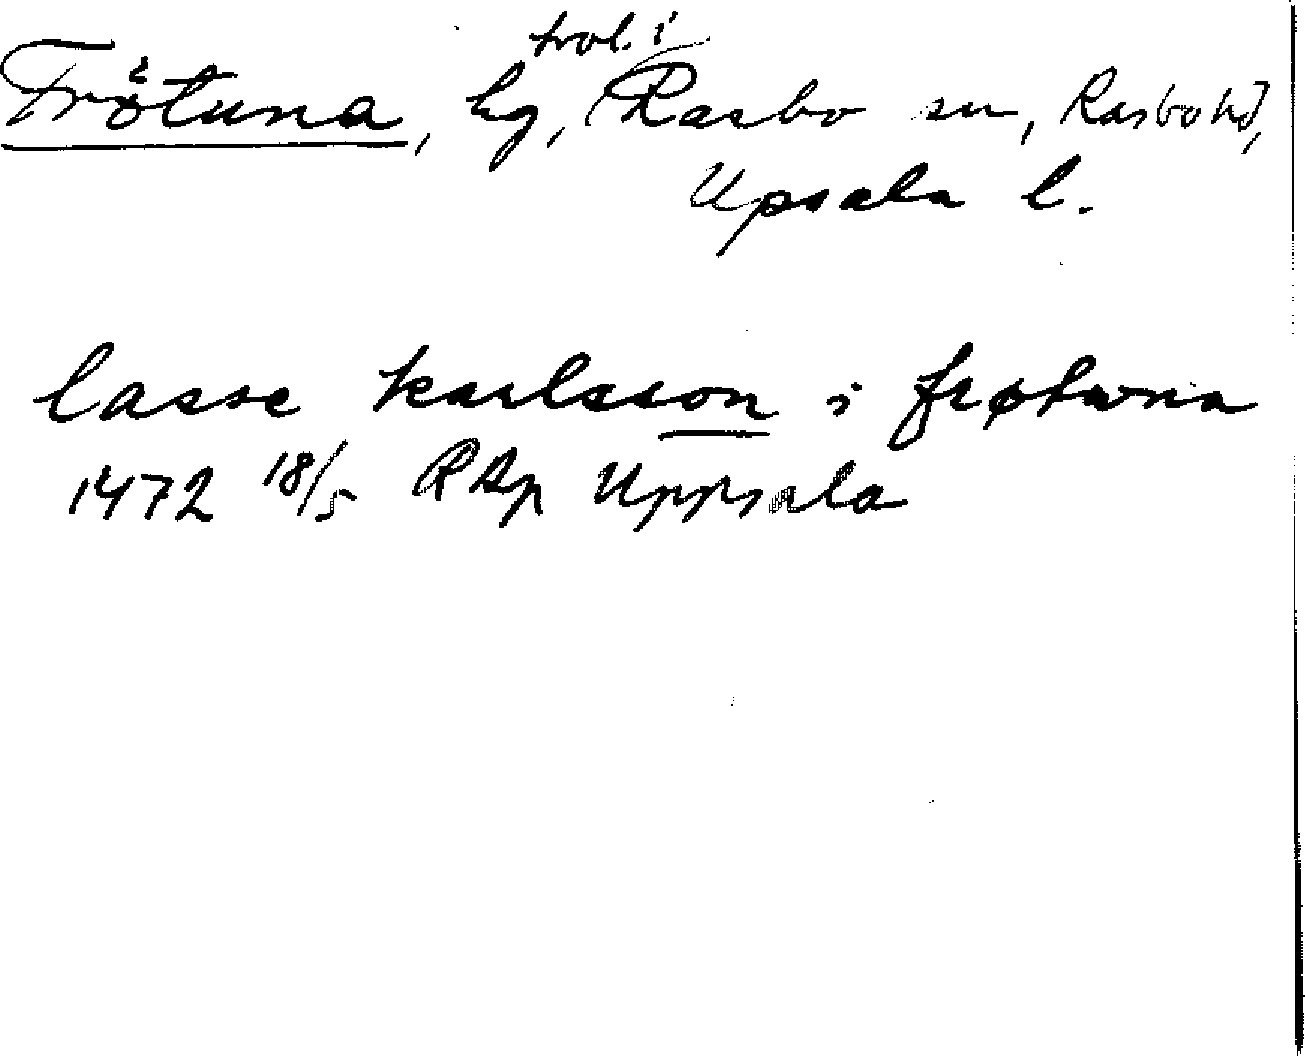 trol. i
Frötuna, hg, Rasbo sn, Rasbo hd,
Upsala l.
lasse karlsson i frøtwna
1472 18/5 RAp Uppsala